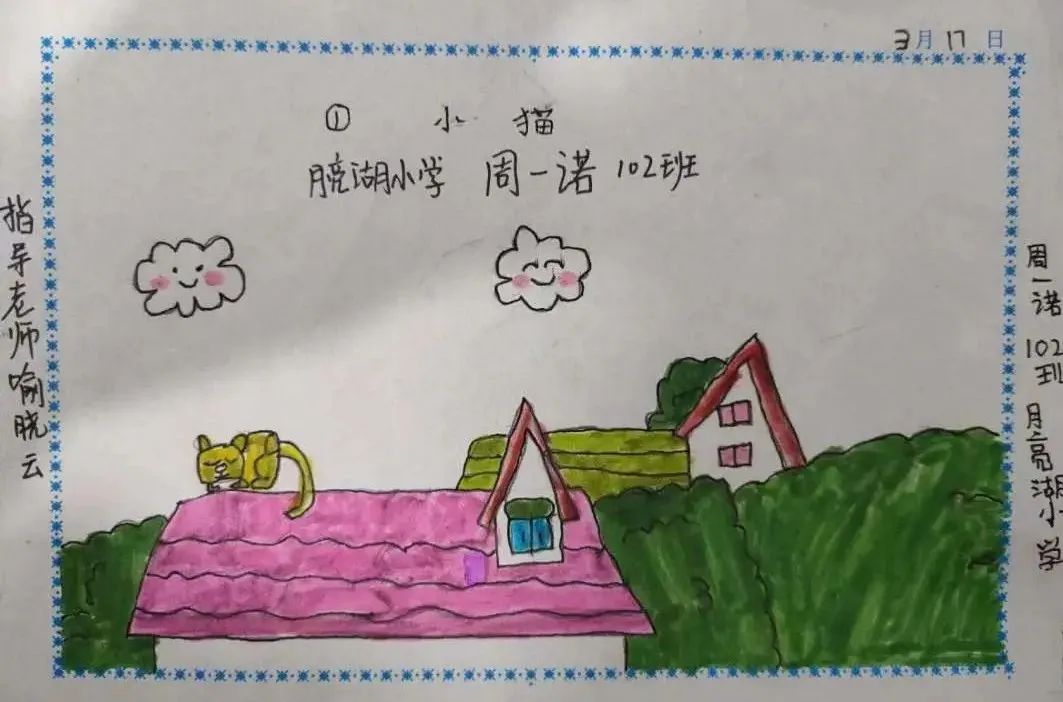 3月17日
① 小猫
月亮湖小学 周一诺 102班
指导老师喻晓云
周一诺 102班 月亮湖小学